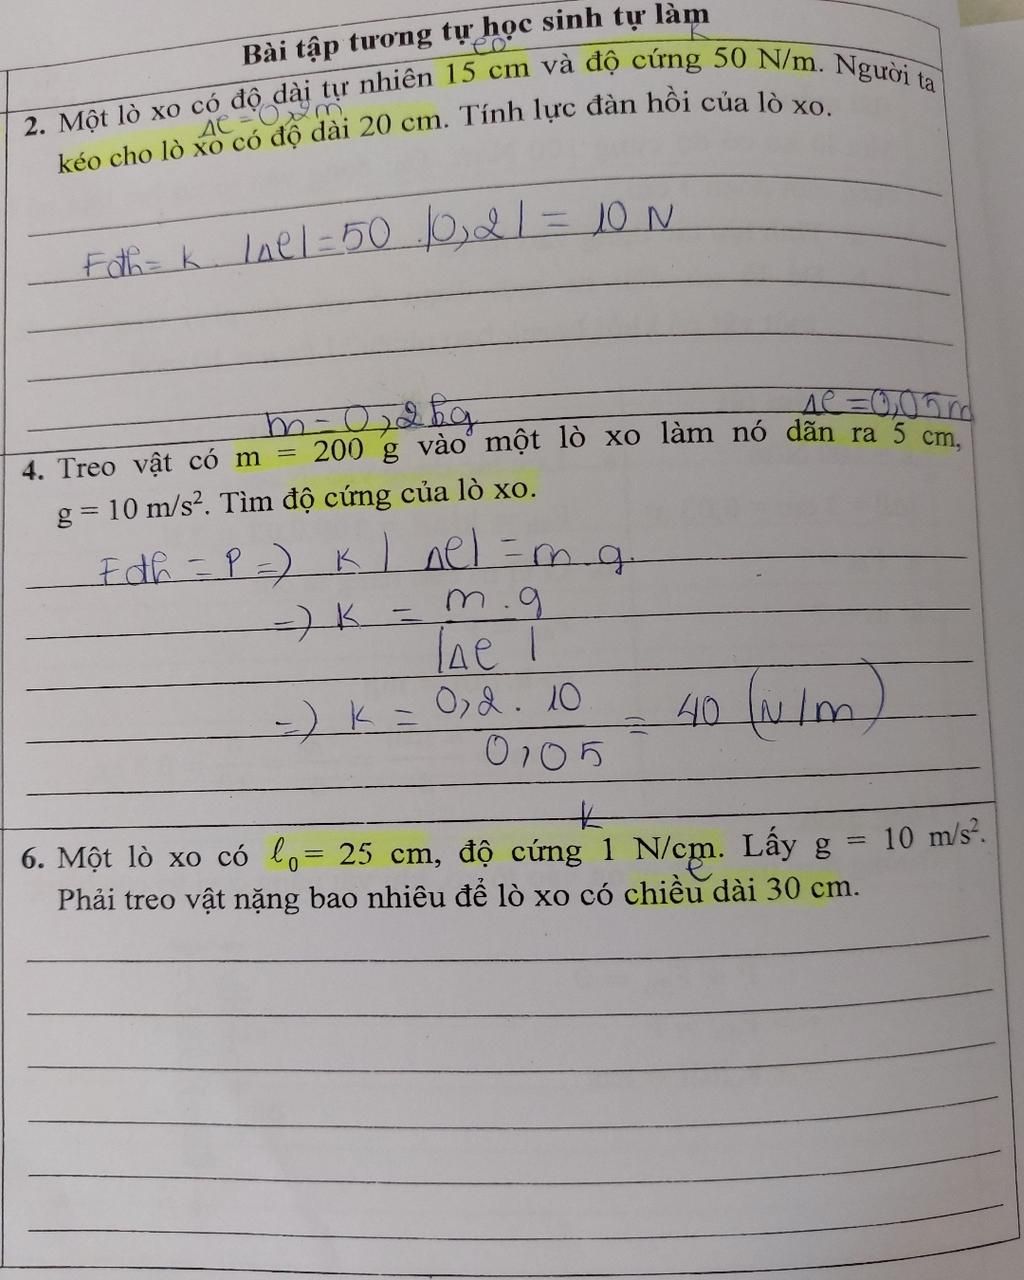 Bài tập tương tự học sinh tự làm
l0 k
2. Một lò xo có độ dài tự nhiên 15 cm và độ cứng 50 N/m. Người ta
Δl = 0,2m
kéo cho lò xo có độ dài 20 cm. Tính lực đàn hồi của lò xo.
Fđh = k . |Δl| = 50 . |0,2| = 10 N
m = 0,2kg Δl = 0,05m
4. Treo vật có m = 200 g vào một lò xo làm nó dãn ra 5 cm,
g = 10 m/s². Tìm độ cứng của lò xo.
Fđh = P => k |Δl| = m . g.
=> k = m . g
|Δl|
=> k = 0,2 . 10 = 40 (N/m)
0,05
k
6. Một lò xo có ℓ₀ = 25 cm, độ cứng 1 N/cm. Lấy g = 10 m/s².
l
Phải treo vật nặng bao nhiêu để lò xo có chiều dài 30 cm.